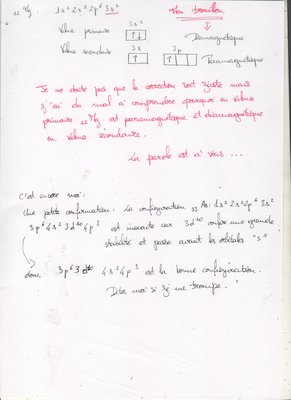 Mon brouillon
12Mg 1s² 2s² 2p⁶ 3s²
3s²
Valence primaire ↑↓ Diamagnétique
Valence secondaire 3s 3p
↑ ↑ Paramagnétique
Je ne doute pas que la correction soit juste mais
j'ai du mal à comprendre pourquoi en valence
primaire 12Mg est paramagnétique et diamagnétique
en valence secondaire.
La parole est à vous ...
C'est encore moi :
Une petite confirmation : La configuration 33As : 1s² 2s² 2p⁶ 3s²
3p⁶ 4s² 3d¹⁰ 4p³ est inexacte car 3d¹⁰ confère une grande
stabilité et passe avant les orbitales "s"
donc 3p⁶ 3d¹⁰ 4s² 4p³ est la bonne configuration.
Dites moi si j'me trompe.